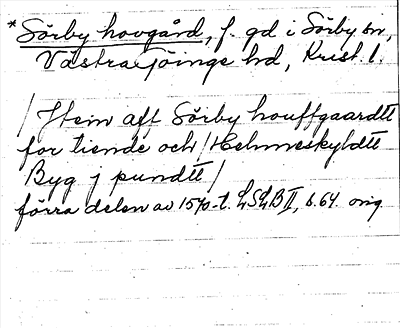 *Sörby hovgård, f. gd i Sörby sn,
Västra Göinge hd, Krist. l.
/Item aff Sörby houffgaardtt
for tiende och /Helmneskyldtt
Byg j pundtt/
förra delen av 1570-t. LSLB II, s. 64. orig.